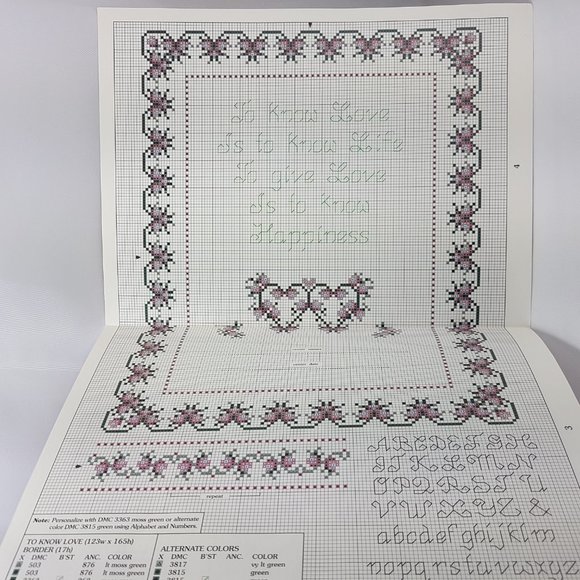 To Know Love
Is to Know Life
To give Love
Is to Know
Happiness
4
3
repeat
ABCDEFGH
IJKLMN
OPQRSTU
VWXYZ&
abcdefghijklm
nopqrstuvwxyz
Note: Personalize with DMC 3363 moss green or alternate
color DMC 3815 green using Alphabet and Numbers.
TO KNOW LOVE (123w x 165h)
BORDER (17h)
X DMC B'ST ANC. COLOR
503 876 lt moss green
503 876 lt moss green
ALTERNATE COLORS
X DMC B'ST ANC. COLOR
3817 vy lt green
3815 green